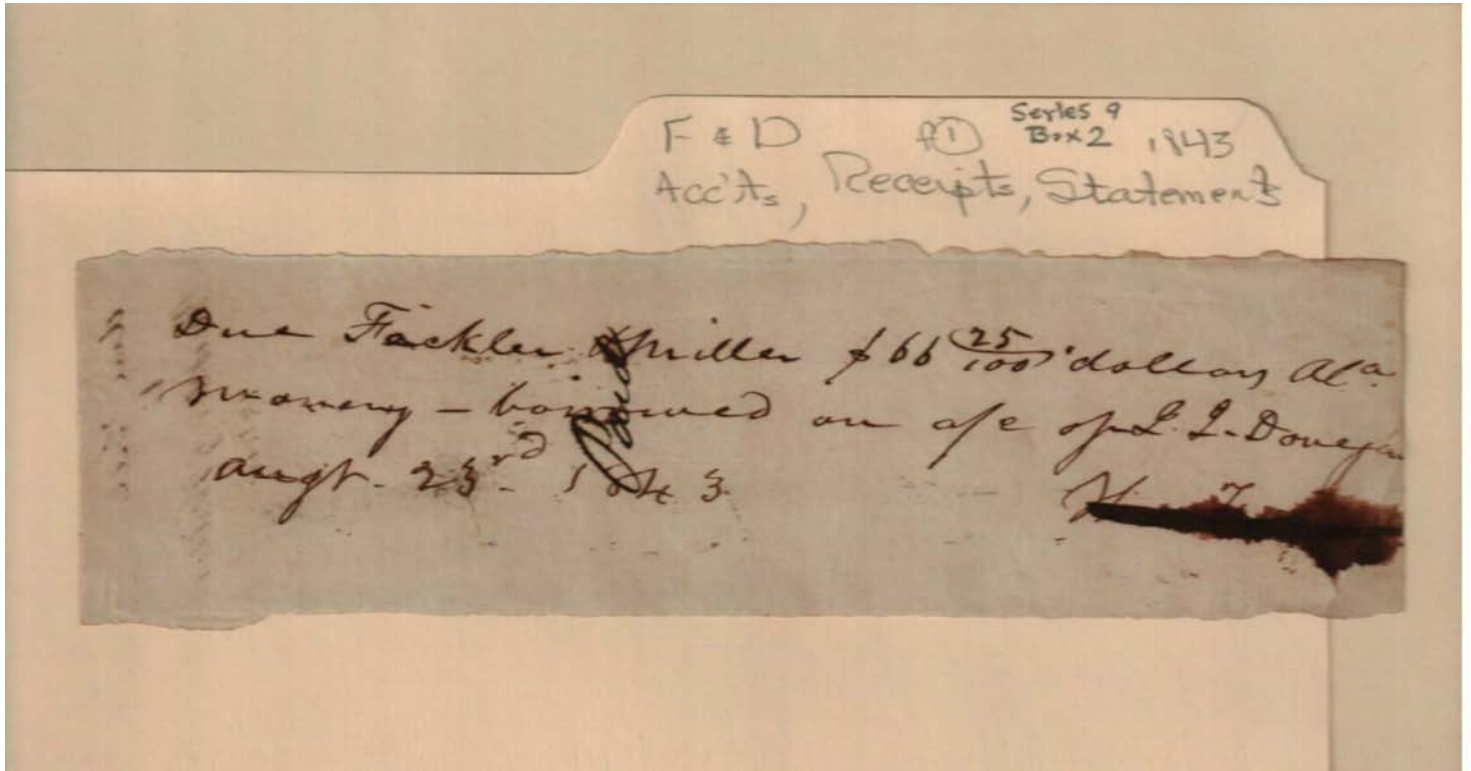 F & D f① Series 9
Box 2 1843
Acc'ts, Receipts, Statements
Due Fackler & Miller $66 25/100 dollars Ala
money – borrowed on a/c of J. J. Donegan
Augt. 23rd 1843
Paid